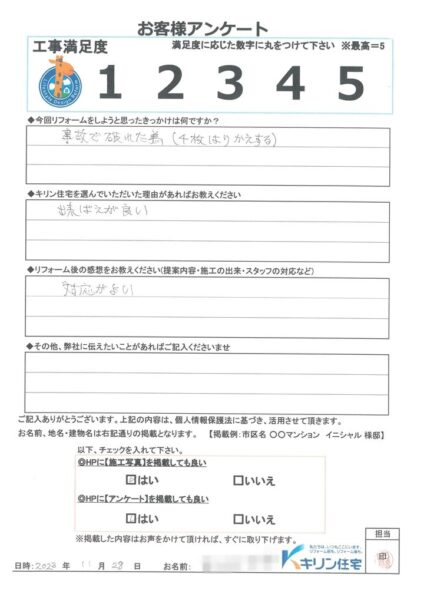 お客様アンケート
工事満足度
満足度に応じた数字に丸をつけて下さい ※最高=5
1 2 3 4 5
◆今回リフォームをしようと思ったきっかけは何ですか?
事故で破れた為(4枚はりかえする)
◆キリン住宅を選んでいただいた理由があればお教えください
出来ばえが良い
◆リフォーム後の感想をお教えください(提案内容・施工の出来・スタッフの対応など)
対応がよい
◆その他、弊社に伝えたいことがあればご記入くださいませ
ご記入ありがとうございます。上記の内容は、個人情報保護法に基づき、活用させて頂きます。
お名前、地名・建物名は右記通りの掲載となります。 【掲載例:市区名 〇〇マンション イニシャル 様邸】
以下、チェックを入れて下さい。
◎HPに【施工写真】を掲載しても良い
☑はい □いいえ
◎HPに【アンケート】を掲載しても良い
☑はい □いいえ
※掲載した内容はお声をかけて頂ければ、すぐに取り下げます。
担当
印
日時:2023 年 11 月 28 日 お名前:
キリン住宅